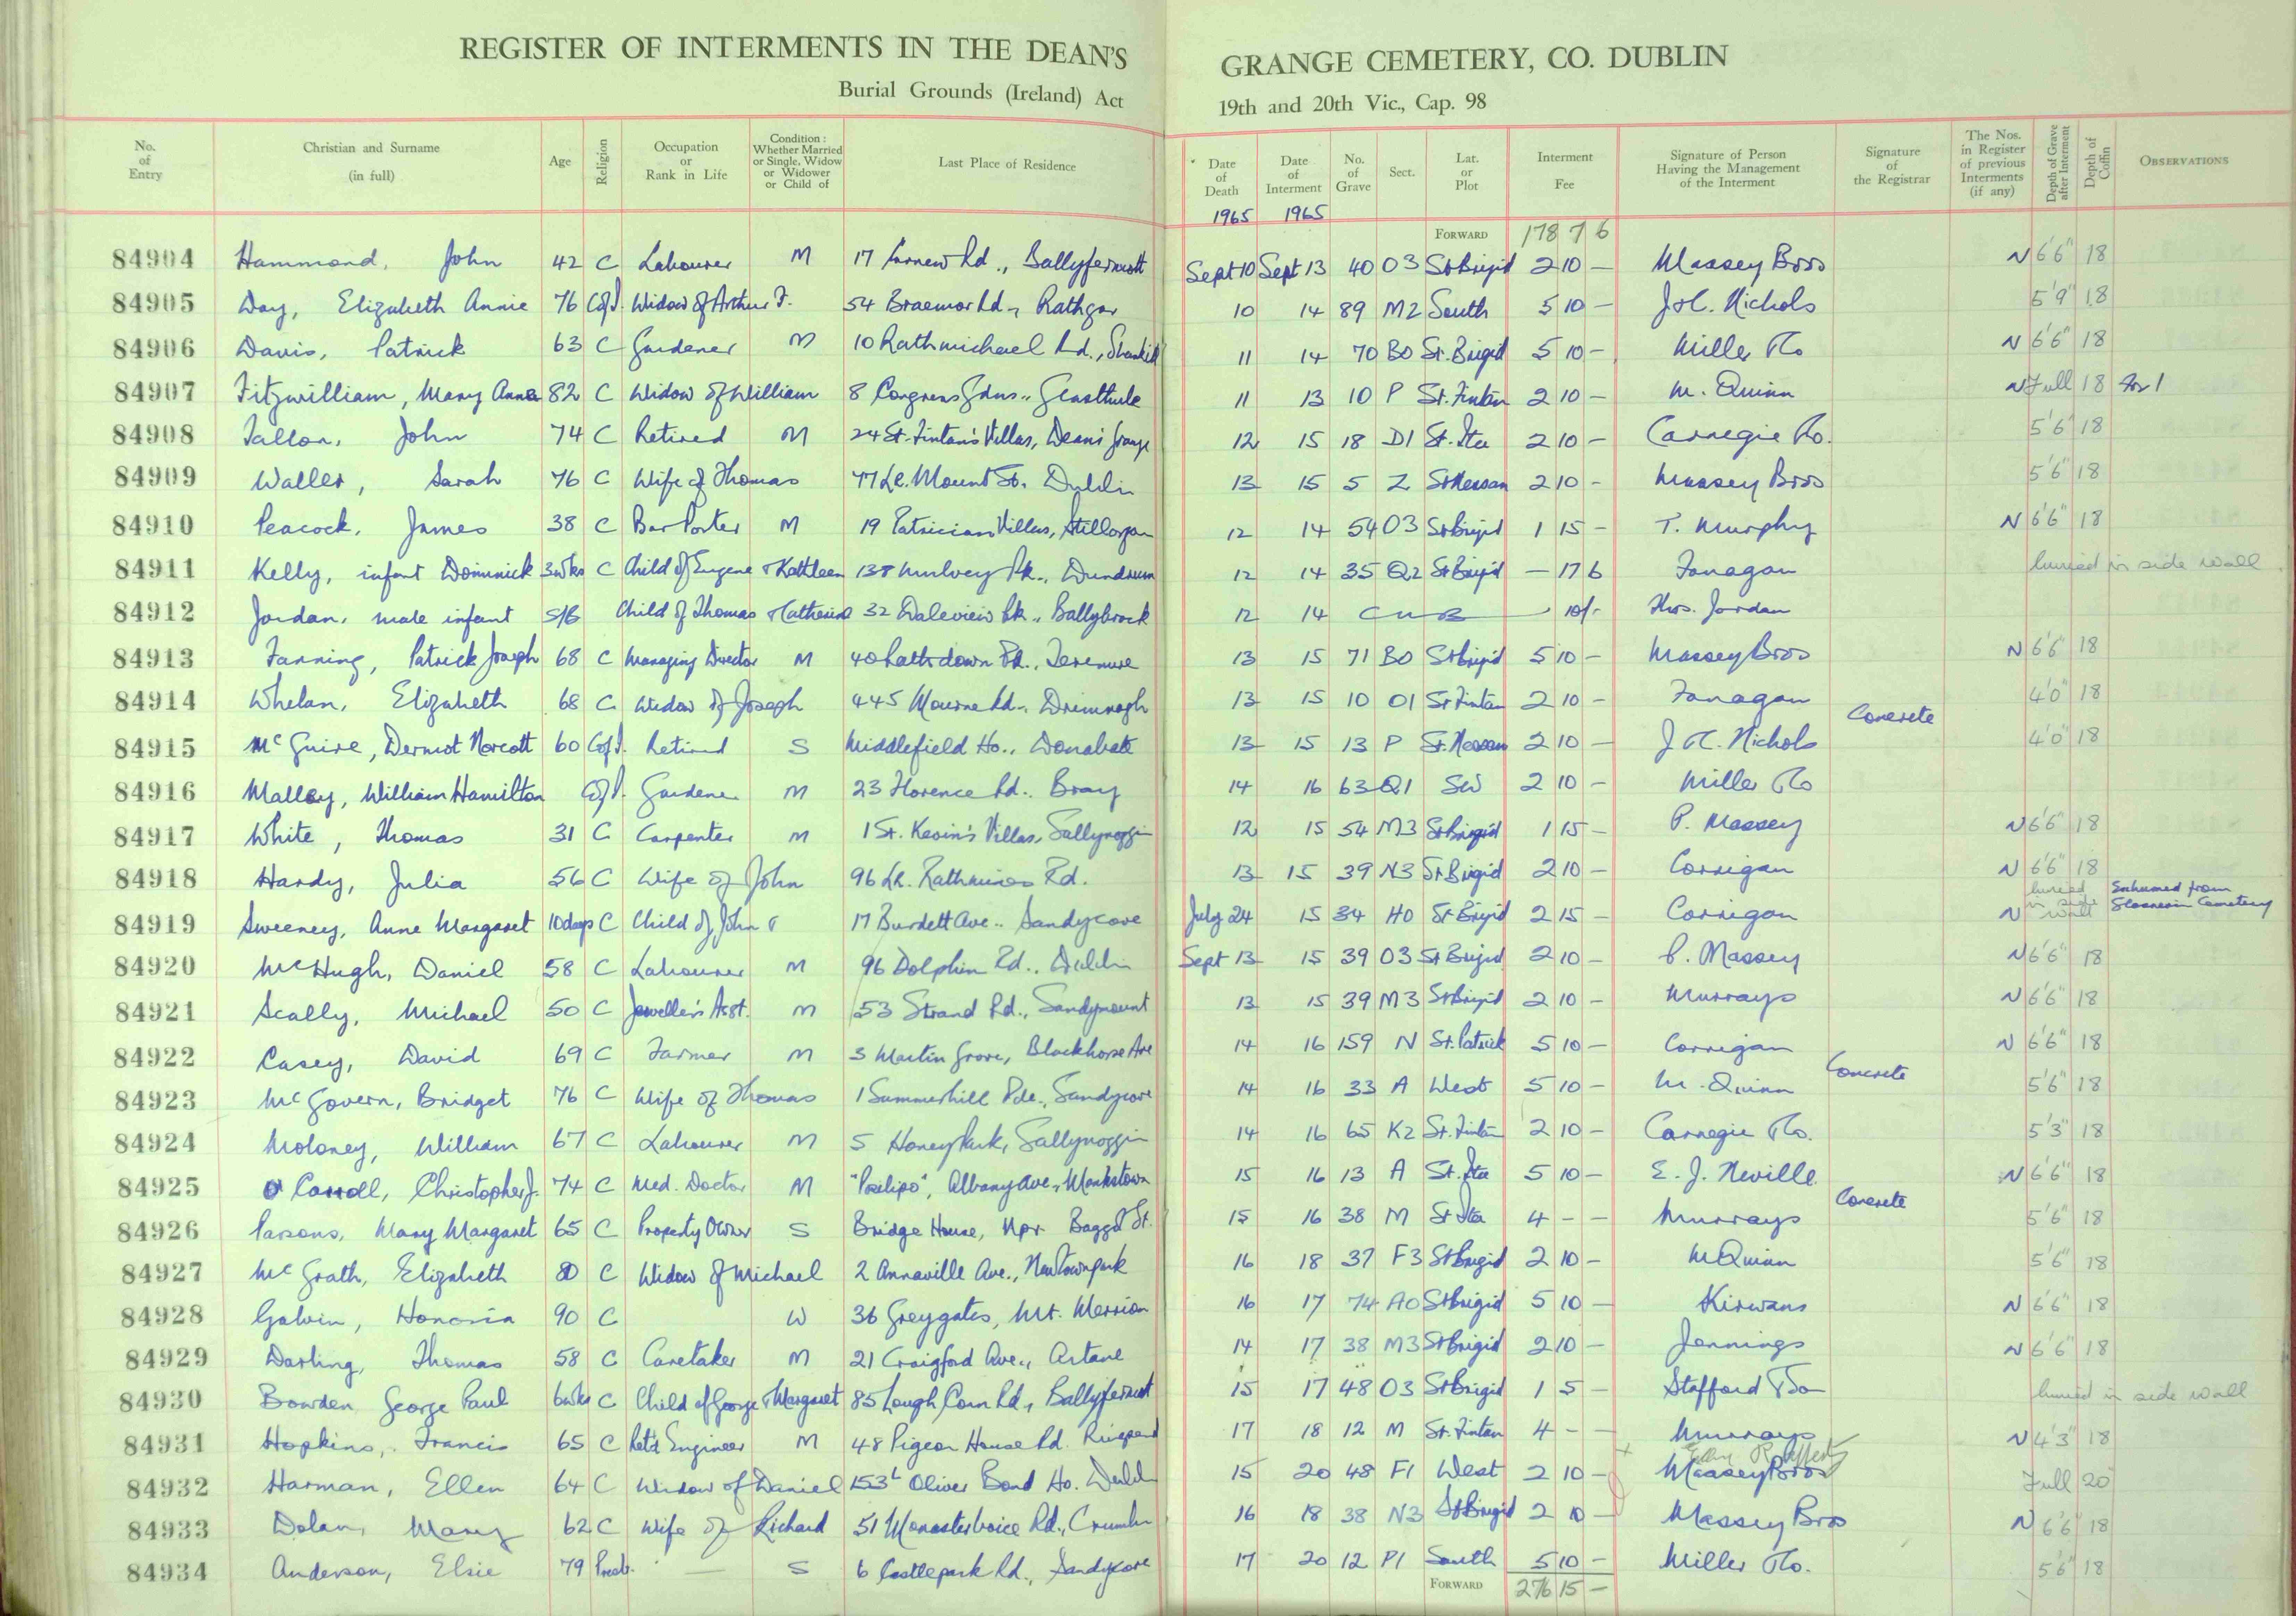 REGISTER OF INTERMENTS IN THE DEAN'S GRANGE CEMETERY, CO. DUBLIN
Burial Grounds (Ireland) Act 19th and 20th Vic., Cap. 98
No. of Entry | Christian and Surname (in full) | Age | Religion | Occupation or Rank in Life | Condition: Whether Married or Single, Widow or Widower or Child of | Last Place of Residence | Date of Death | Date of Interment | No. of Grave | Sect. | Lat. or Plot | Interment Fee | Signature of Person Having the Management of the Interment | Signature of the Registrar | The Nos. in Register of previous Interments (if any) | Depth of Grave after Interment | Depth of Coffin | OBSERVATIONS
1965 1965
FORWARD 178 7 6
84904 Hammond, John 42 C Labourer M 17 Carnew Rd., Ballyfermott Sept 10 Sept 13 40 O3 St Brigid 2 10 - Massey Bros N 6'6" 18
84905 Day, Elizabeth Annie 76 C of I. Widow of Arthur F. 54 Braemor Rd., Rathgar 10 14 89 M2 South 5 10 - J & C. Nichols 5'9" 18
84906 Davis, Patrick 63 C Gardener M 10 Rathmichael Rd., Shankill 11 14 70 B0 St. Brigid 5 10 - Miller & Co N 6'6" 18
84907 Fitzwilliam, Mary Anne 82 C Widow of William 8 Congress Gdns., Glasthule 11 13 10 P St. Fintan 2 10 - M. Quinn N Full 18 for 1
84908 Fallon, John 74 C Retired M 24 St. Fintan's Villas, Deans Grange 12 15 18 D1 St. Ita 2 10 - Carnegie & Co. 5'6" 18
84909 Waller, Sarah 76 C Wife of Thomas 77 Lr. Mount St. Dublin 13 15 5 Z St Nessan 2 10 - Massey Bros 5'6" 18
84910 Peacock, James 38 C Bar Porter M 19 Patrician Villas, Stillorgan 12 14 54 O3 St Brigid 1 15 - T. Murphy N 6'6" 18
84911 Kelly, infant Dominick 3wks C Child of Eugene & Kathleen 138 Mulvey Pk., Dundrum 12 14 35 Q2 St Brigid - 17 6 Fanagan buried in side wall
84912 Jordan, male infant S/B Child of Thomas & Catherine 32 Daleview Pk., Ballybrack 12 14 10/- Thos. Jordan
84913 Fanning, Patrick Joseph 68 C Managing Director M 40 Rathdown Pk., Terenure 13 15 71 B0 St Brigid 5 10 - Massey Bros N 6'6" 18
84914 Whelan, Elizabeth 68 C Widow of Joseph 445 Mourne Rd., Drimnagh 13 15 10 O1 St Fintan 2 10 - Fanagan 4'0" 18
Concrete
84915 McGuire, Dermot Norcott 60 C of I. Retired S Middlefield Ho., Donabate 13 15 13 P St. Nessan 2 10 - J & C. Nichols 4'0" 18
84916 Malley, William Hamilton C of I. Gardener M 23 Florence Rd., Bray 14 16 63 Q1 SW 2 10 - Miller & Co
84917 White, Thomas 31 C Carpenter M 1 St. Kevin's Villas, Sallynoggin 12 15 54 M3 St Brigid 1 15 - P. Massey N 6'6" 18
84918 Hardy, Julia 56 C Wife of John 96 Lr. Rathmines Rd. 13 15 39 N3 St Brigid 2 10 - Corrigan N 6'6" 18
84919 Sweeney, Anne Margaret 10 days C Child of John & 17 Burdett Ave., Sandycove July 24 15 34 H0 St Brigid 2 15 - Corrigan N buried in side wall Exhumed from Glasnevin Cemetery
84920 McHugh, Daniel 58 C Labourer M 96 Dolphin Rd., Dublin Sept 13 15 39 O3 St Brigid 2 10 - P. Massey N 6'6" 18
84921 Scally, Michael 50 C Jeweller's Asst. M 53 Strand Rd., Sandymount 13 15 39 M3 St Brigid 2 10 - Murrays N 6'6" 18
84922 Casey, David 69 C Farmer M 3 Martin Grove, Blackhorse Ave 14 16 159 N St. Patrick 5 10 - Corrigan N 6'6" 18
Concrete
84923 McGovern, Bridget 76 C Wife of Thomas 1 Summerhill Pde., Sandycove 14 16 33 A West 5 10 - M. Quinn 5'6" 18
84924 Moloney, William 67 C Labourer M 5 Honey Park, Sallynoggin 14 16 65 K2 St. Fintan 2 10 - Carnegie & Co. 5'3" 18
84925 O'Carroll, Christopher J. 74 C Med. Doctor M Albany Ave., Monkstown 15 16 13 A St. Ita 5 10 - E. J. Neville N 6'6" 18
Concrete
84926 Parsons, Mary Margaret 65 C Property Owner S Bridge House, Upr. Baggot St. 15 16 38 M St Ita 4 - - Murrays 5'6" 18
84927 McGrath, Elizabeth 80 C Widow of Michael 2 Annaville Ave., Newtownpark 16 18 37 F3 St Brigid 2 10 - M Quinn 5'6" 18
84928 Galvin, Honoria 90 C W 36 Greygates, Mt. Merrion 16 17 74 A0 St Brigid 5 10 - Kirwans N 6'6" 18
84929 Darling, Thomas 58 C Caretaker M 21 Craigford Ave., Artane 14 17 38 M3 St Brigid 2 10 - Jennings N 6'6" 18
84930 Bowden George Paul 6wks C Child of George & Margaret 85 Lough Conn Rd., Ballyfermot 15 17 48 O3 St Brigid 1 5 - Stafford & Son buried in side wall
84931 Hopkins, Francis 65 C Ret'd Engineer M 48 Pigeon House Rd. Ringsend 17 18 12 M St. Fintan 4 - - Murrays N 4'3" 18
84932 Harman, Ellen 64 C Widow of Daniel 153L Oliver Bond Ho. Dublin 15 20 48 F1 West 2 10 - Massey Bros Full 20
84933 Dolan, Mary 62 C Wife of Richard 51 Monasterboice Rd., Crumlin 16 18 38 N3 St Brigid 2 10 - Massey Bros N 6'6" 18
84934 Anderson, Elsie 79 Presb. — S 6 Castlepark Rd., Sandycove 17 20 12 P1 South 5 10 - Miller & Co. 5'6" 18
FORWARD 276 15 -